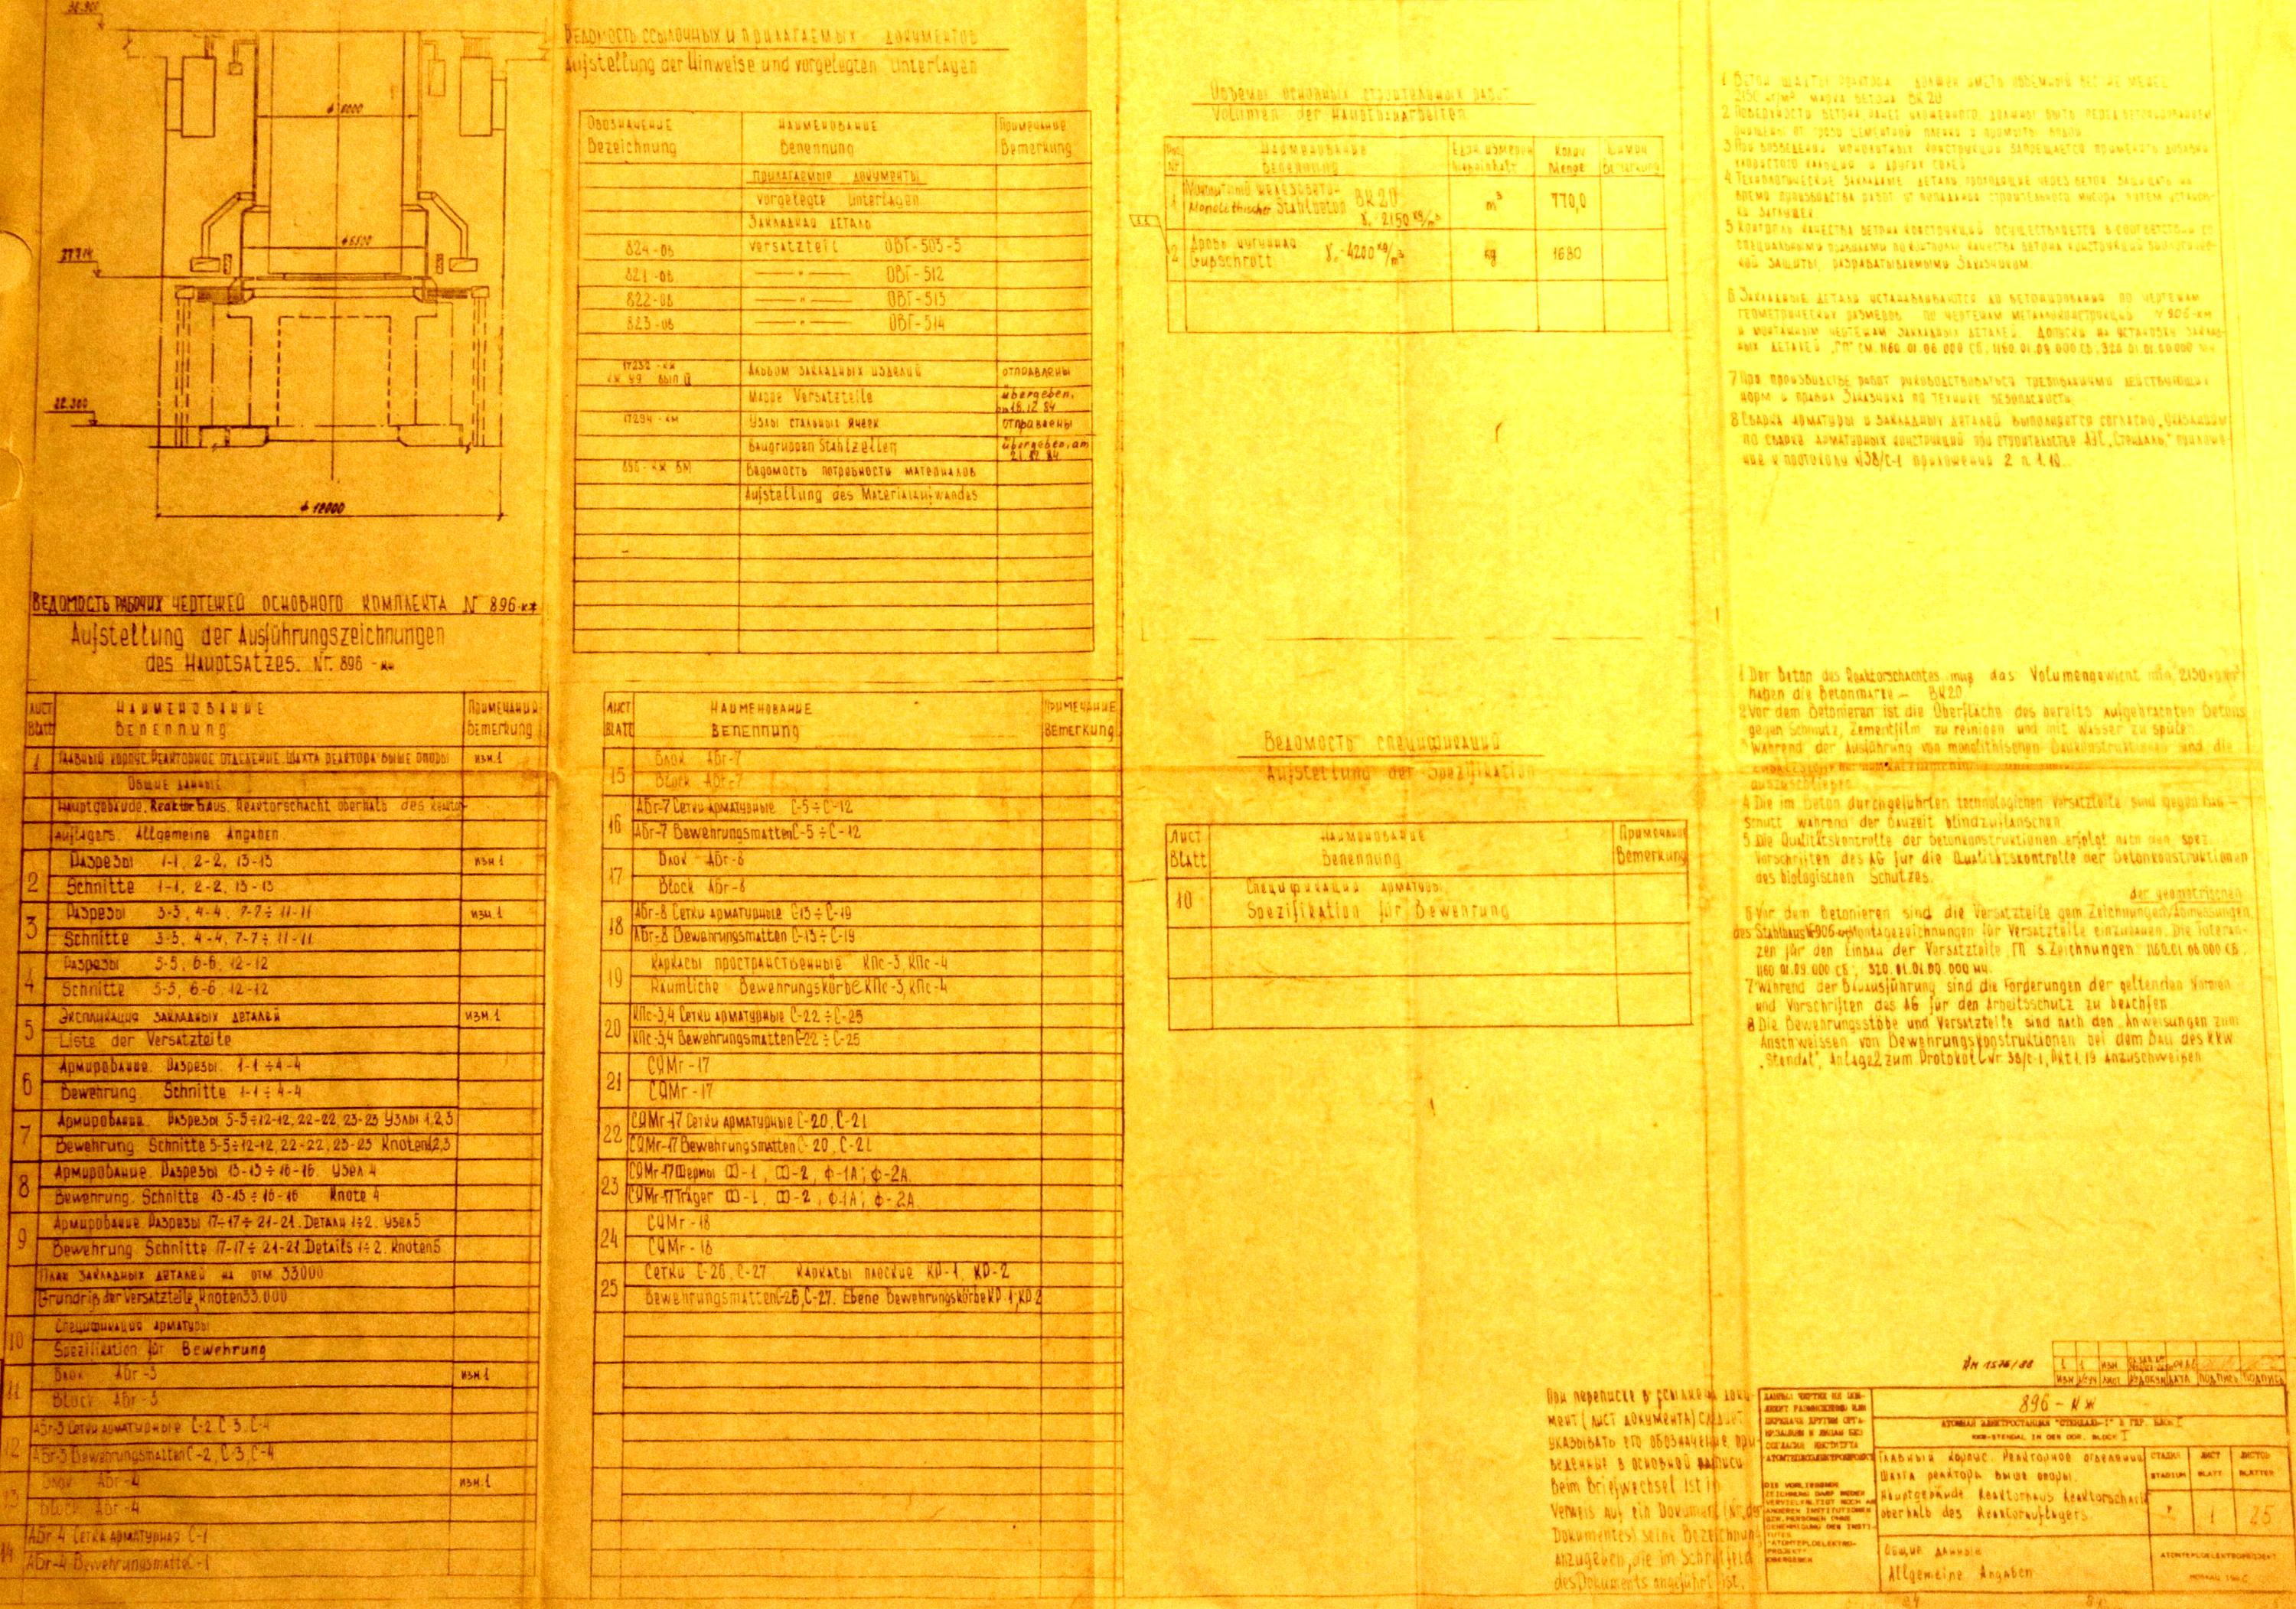 36.900
ф 6000
ф 5500
22.300
ф 12000
Ведомость рабочих чертежей основного комплекта N 896-кж
Aufstellung der Ausführungszeichnungen
des Hauptsatzes. Nr. 896 -
Лист Наименование Примечание
Blatt Benennung Bemerkung
1 Главный корпус. Реакторное отделение Шахта реактора выше опоры изм.1
Общие данные
Hauptgebäude. Reaktorhaus. Reaktorschacht oberhalb des
Auflagers. Allgemeine Angaben
2 Разрезы 1-1, 2-2, 13-13 изм 1
Schnitte 1-1, 2-2, 13-13
3 Разрезы 3-3, 4-4, 7-7÷11-11 изм.1
Schnitte 3-3, 4-4, 7-7÷11-11
4 Разрезы 5-5, 6-6, 12-12
Schnitte 5-5, 6-6, 12-12
5 Экспликация закладных деталей изм.1
Liste der Versatzteile
6 Армирование. Разрезы. 1-1÷4-4
Bewehrung Schnitte 1-1÷4-4
7 Армирование. Разрезы 5-5÷12-12, 22-22, 23-23 Узлы 1,2,3
Bewehrung Schnitte 5-5÷12-12, 22-22, 23-23 Knoten 1,2,3
8 Армирование. Разрезы 13-13÷16-16. Узел 4
Bewehrung. Schnitte 13-13÷16-16 Knote 4
9 Армирование Разрезы 17-17÷21-21. Детали 1÷2. Узел 5
Bewehrung Schnitte 17-17÷21-21. Details 1÷2. Knoten 5
План закладных деталей на отм 33000
Grundriß der Versatzteile, Knoten 33.000
10 Спецификация арматуры
Spezifikation für Bewehrung
11 Блок АБг-3 изм.1
Block АБг-3
12 АБг-3 Сетки арматурные С-2 С-3, С-4
АБг-3 Bewehrungsmatten С-2, С-3, С-4
13 Блок АБг-4 изм.1
Block АБг-4
14 АБг-4 Сетка арматурная С-1
АБг-4 Bewehrungsmatte С-1
Ведомость ссылочных и прилагаемых документов
Aufstellung der Hinweise und vorgelegten Unterlagen
Обозначение Наименование Примечание
Bezeichnung Benennung Bemerkung
Прилагаемые документы
vorgelegte Unterlagen
Закладная деталь
824-08 Versatzteil ОВГ-503-5
821-08 —"— ОВГ-512
822-08 —"— ОВГ-513
823-08 —"— ОВГ-514
Альбом закладных изделий отправлены
Mappe Versatzteile übergeben,
18.12.84
17294-км Узлы стальных ячеек отправлены
Baugruppen Stahlzellen übergeben, am
896-кж ВМ Ведомость потребности материалов
Aufstellung des Materialaufwandes
Лист Наименование Примечание
Blatt Benennung Bemerkung
15 Блок АБг-7
Block АБг-7
16 АБг-7 Сетки арматурные С-5÷С-12
АБг-7 Bewehrungsmatten С-5÷С-12
17 Блок АБг-8
Block АБг-8
18 АБг-8 Сетки арматурные С-13÷С-19
АБг-8 Bewehrungsmatten С-13÷С-19
19 Каркасы пространственные КПс-3, КПс-4
Räumliche Bewehrungskörbe КПс-3, КПс-4
20 КПс-3,4 Сетки арматурные С-22÷С-25
КПс-3,4 Bewehrungsmatten С-22÷С-25
21 СЯМг-17
СЯМг-17
22 СЯМг-17 Сетки арматурные С-20, С-21
СЯМг-17 Bewehrungsmatten С-20, С-21
23 СЯМг-17 Фермы Ф-1, Ф-2, ф-1А; ф-2А
СЯМг-17 Träger Ф-1, Ф-2, ф-1А; ф-2А
24 СЯМг-18
СЯМг-18
25 Сетки С-26, С-27 Каркасы плоские КР-1, КР-2
Bewehrungsmatten С-26, С-27. Ebene Bewehrungskörbe КР-1, КР-2
Объемы основных строительных работ
Volumen der Hauptbauarbeiten
Наименование Един измерен Колич
Benennung Maßeinheit Menge Bemerkung
1 Монолитный железобетон BK20
Monolithischer Stahlbeton γ=2150 кg/m³ m³ 770,0
2 Дробь чугунная
Gußschrott γ=4200 кg/m³ kg 1680
Ведомость спецификаций
Aufstellung der Spezifikation
Лист Наименование Примечание
Blatt Benennung Bemerkung
10 Спецификация арматуры
Spezifikation für Bewehrung
1 Бетон шахты реактора должен иметь объемный вес не менее
2150 кг/м³ марка бетона BK20
2 Поверхность бетона ранее уложенного, должна быть перед бетонированием
очищена от грязи цементной пленки и промыта водой
3 При возведении монолитных конструкций запрещается применять добавки
хлористого кальция и других солей
4 Технологические закладные детали проходящие через бетон, защищать на
время производства работ от попадания строительного мусора путем установки
заглушек
5 Контроль качества бетона конструкций осуществляется в соответствии со
специальными правилами по контролю качества бетона конструкций биологичес-
кой защиты, разрабатываемыми Заказчиком
6 Закладные детали устанавливаются до бетонирования по чертежам
геометрических размеров по чертежам металлоконструкций N 906-км
и монтажным чертежам закладных деталей. Допуски на установку заклад-
ных деталей "ГП" см. 1160.01.06 000 СБ, 1160.01.09.000.СБ, 320.01.01.00.000
7 При производстве работ руководствоваться требованиями действующих
норм и правил Заказчика по технике безопасности
8 Сварка арматуры и закладных деталей выполняется согласно "Указаниям
по сварке арматурных конструкций при строительстве АЭС "Стендаль" приложе-
ние к протоколу N38/С-1 приложение 2 п. 1.19.
1 Der Beton des Reaktorschachtes muß das Volumengewicht min 2150
haben die Betonmarke – BK20
2 Vor dem Betonieren ist die Oberfläche des bereits aufgebrachten Betons
gegen Schmutz, Zementfilm zu reinigen und mit Wasser zu spülen
Während der Ausführung von monolithischen Baukonstruktionen sind die
auszuschließen
4 Die im Beton durchgeführten technologichen Versatzteile sind gegen Bau-
schutt während der Bauzeit blindzuflanschen
5 Die Qualitätskontrolle der Betonkonstruktionen erfolgt nach den spez.
Vorschriften des AG für die Qualitätskontrolle der Betonkonstruktionen
des biologischen Schutzes.
der geometrischen
6 Vor dem Betonieren sind die Versatzteile gem Zeichnungen/Abmessungen
des Stahlbaus N906 Montagezeichnungen für Versatzteile einzubauen. Die Toleran-
zen für den Einbau der Versatzteile ГП s. Zeichnungen 1160.01.06.000 СБ,
1160.01.09.000 СБ, 320.01.01.00.000
7 Während der Bauausführung sind die Forderungen der geltenden Normen
und Vorschriften des AG für den Arbeitsschutz zu beachten
8 Die Bewehrungsstäbe und Versatzteile sind nach den "Anweisungen zum
Anschweissen von Bewehrungskonstruktionen bei dem Bau des KKW
"Stendal", Anlage 2 zum Protokoll Nr 38/С-1, Pkt 1.19 anzuschweißen
При переписке в ссылке на доку-
мент (лист документа) следует
указывать его обозначение, при-
веденные в основной надписи
Beim Briefwechsel ist in
Verweis auf ein Dokument (Nr. der
Dokumentes) seine Bezeichnung
anzugeben, die im Schriftfeld
des Dokuments angeführt ist.
896-КЖ
АТОМНАЯ ЭЛЕКТРОСТАНЦИЯ "СТЕНДАЛЬ-1" В ГДР. БЛОК I
KKW-STENDAL IN DER DDR. BLOCK I
Главный корпус. Реакторное отделение
Шахта реактора выше опоры.
Hauptgebäude Reaktorhaus Reaktorschacht
oberhalb des Reaktorauflagers
СТАДИЯ ЛИСТ ЛИСТОВ
STADIUM BLATT BLÄTTER
1 25
Общие данные
Allgemeine Angaben
ATOMTEPLOELEKTROPROJEKT
DIE VORLIEGENDE
ZEICHNUNG DARF WEDER
VERVIELFÄLTIGT NOCH AN
ANDEREN INSTITUTIONEN
BZW. PERSONEN OHNE
GENEHMIGUNG DES INSTI-
TUTES
"ATOMTEPLOELEKTRO-
PROJEKT"
ÜBERGEBEN